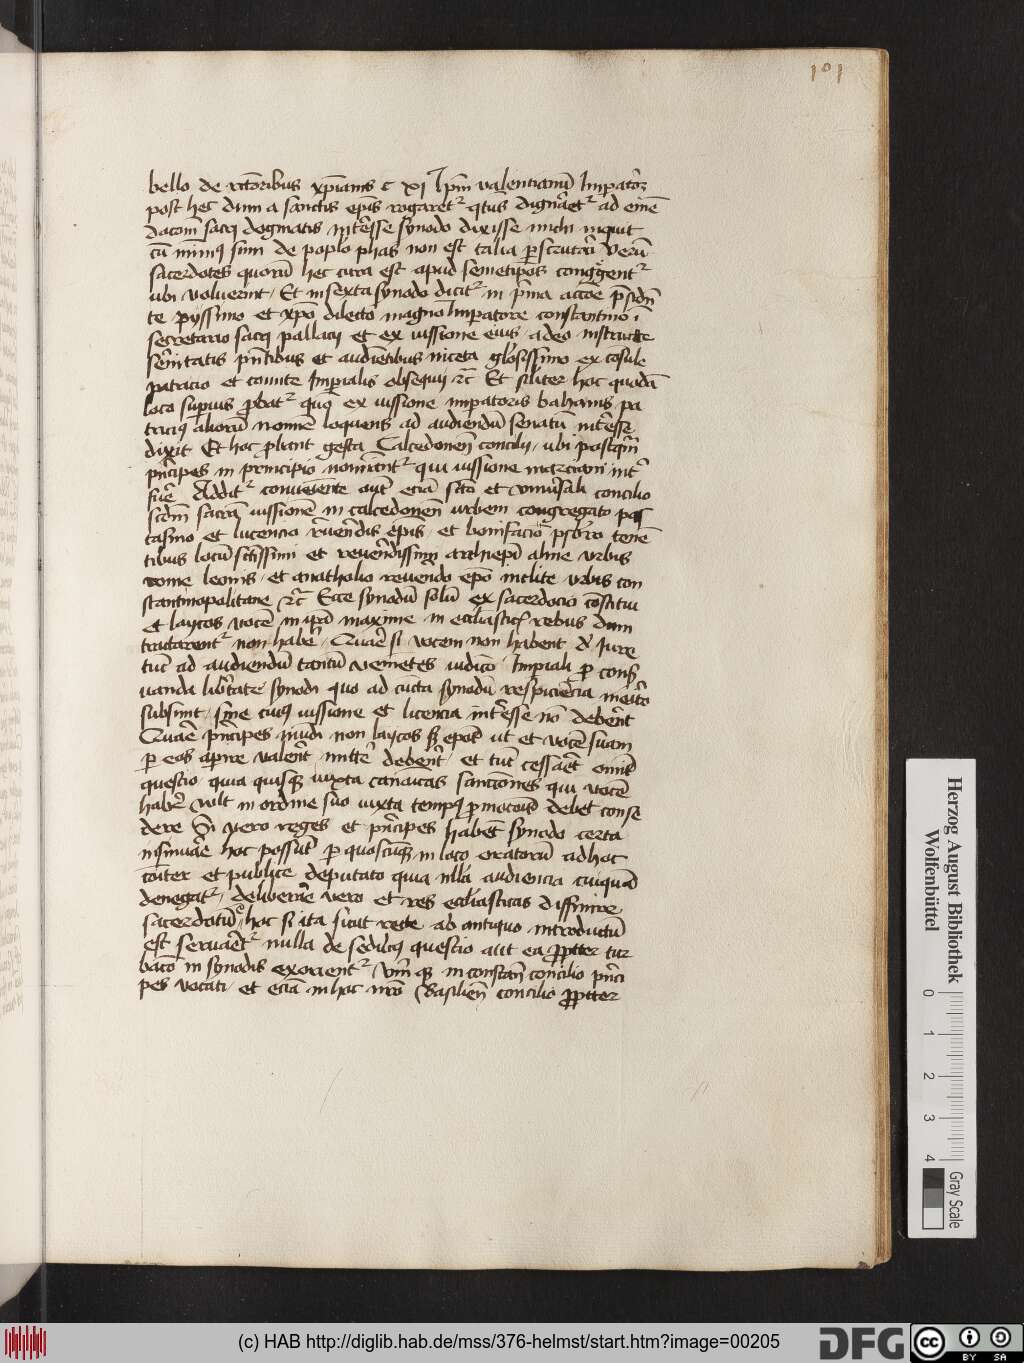 101
bello de rectoribus xp̄ianis c xi Ip̄m valentianū Imperatorē
post hec dum a sanctis ep̄is rogaret᷑ qt̄us dignaret᷑ ad emē
dacōm sacri dogmatis intēsse synodo dixisse michi inquit
cū minimus sum de poplo phas non est talia p̄scrutari Verū
sacerdotes quorū hec cura est apud semetipos congregent᷑
ubi voluerint Et in sexta synodo dicit᷑ in p̄ma accōe p̄sidn̄
te pyssimo et xp̄o dilecto magno Imperatore constantino ī
secretario sacri pallacij et ex iussione eius adeo instructe
sērnitatis pn̄tibus et audientibus niceta glosissimo ex cōsule
patricio et comite Imperialis obsequij ⁊c̄ Et siliter hoc quodā
loco superius probat᷑ quō ex iussione imperatoris bahanis pa
tricius aliorū nomine loquens ad audiendū senatū intēsse
dixit Et hoc probant gesta Calcedonen̄ concilij ubi postq̄m
pn̄cipes in principio nominant᷑ qui iussione marciani int̄
fuēr Addit᷑ conveniente aut̄ eciā sc̄to et universali concilio
scdm̄ sacrā iussionē in calcedonen̄ urbem congregato pas
casino et lucencio rēvendis ep̄is et bonifacio p̄sb̄ro tenē
tibus locū sc̄tissimi et reverēdissimi archiep̄i alme urbis
rome leonis et anatholio revendo ep̄o inclite urbis con
stantinopolitane ⁊c̄ Ecce synodū solū ex sacerdocio cōstitui
et laycos vocē in ip̄a maxime in ecc̄liasticis rebus dum
tractarent᷑ non habēr Quaē si vocem non habent de Iure
tūc ad audiendū tantū venientes iudicō Imp̄iali p cons̄
vanda lib̄tate synodi quo ad cūcta synodū respiciēcia merito
subsunt sine cuius iussione et licencia intēsse nō debent
Quaē pn̄cipes mūdi non laycos sed ep̄os ut et vocē suam
p eos aperire valent mittēr debent et tūc cessaret omīs
questio quia quisque iuxta canōicas sanctiones qui vocē
habēr vult in ordine suo iuxta tempus p̄mocōis debet conse
dere Si vero reges et pn̄cipes habent synodo certa
insinuāre hoc possūt p quoscūque in loco oratorū ad hoc
cōiter et publice deputato quia nlli audiencia cuiquā
denegat᷑ deliberāre vero et res ecc̄liasticas diffinire
sacerdotū hoc si ita sicut recte ab antiquo introductū
est servāret᷑ nulla de sedilibus questio aut ea propter tur
bacō in synodis exorient᷑ Vn̄ quia in constan̄ concilio pn̄ci
pes vocati et eciā in hoc nr̄o Basilien̄ concilio propter
Herzog August Bibliothek
Wolfenbüttel
0 1 2 3 4
Gray Scale
(c) HAB http://diglib.hab.de/mss/376-helmst/start.htm?image=00205
DFG
cc BY SA